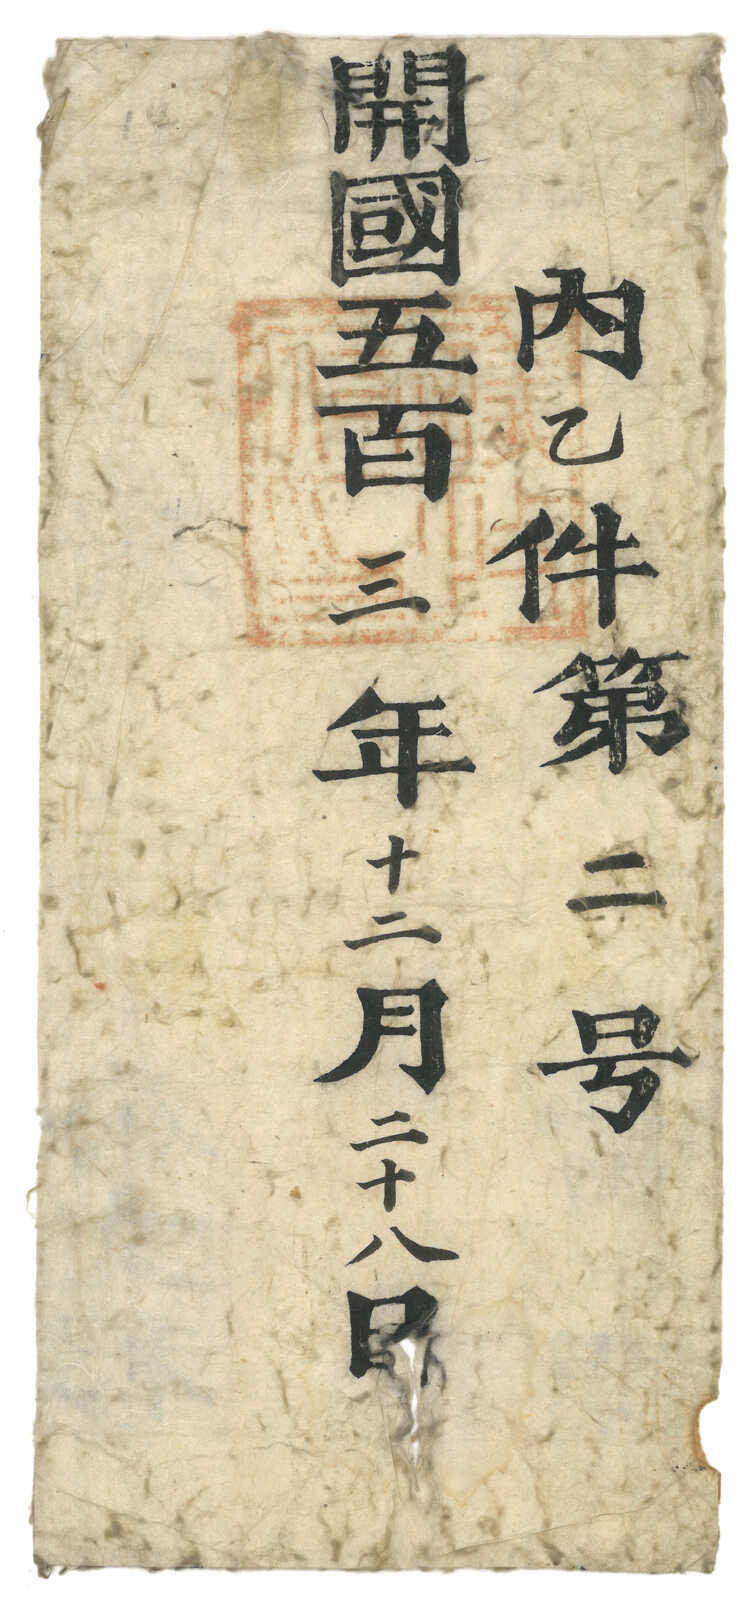 內乙件第二号
開國五百三年十二月二十八日